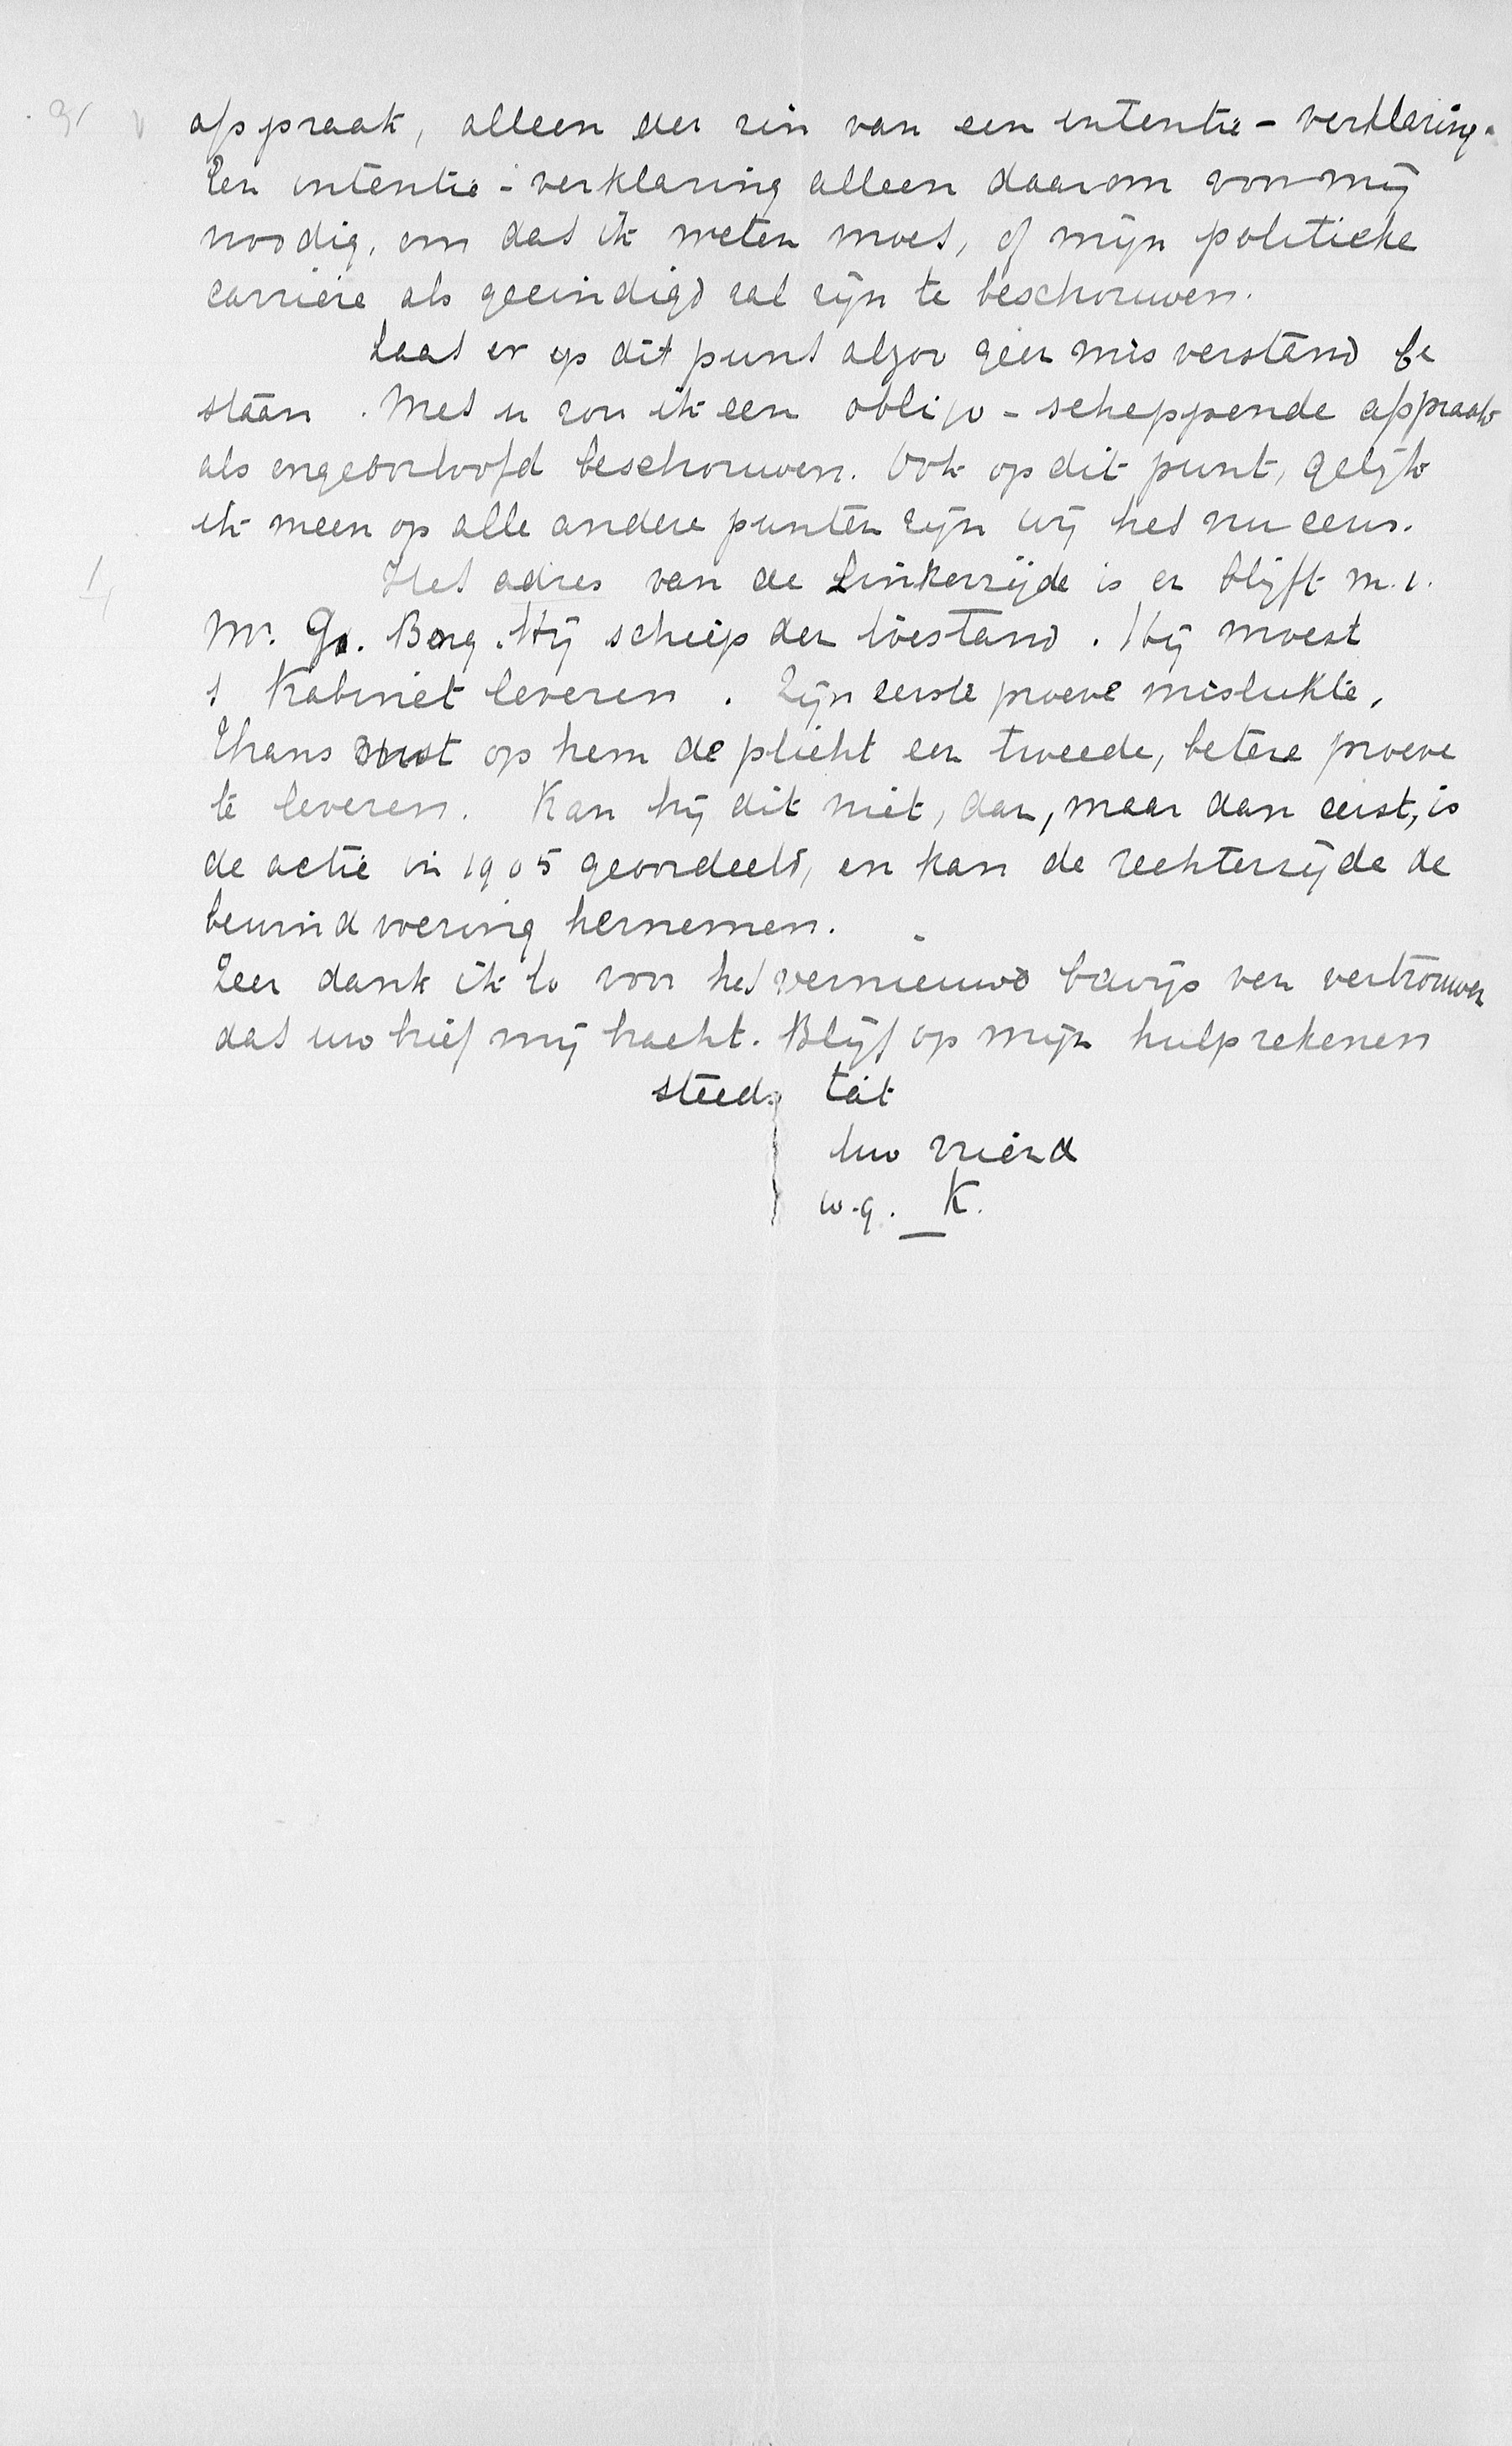 afspraak, alleen den zin van een intentie-verklaring.
Een intentie-verklaring alleen daarom voor mij
noodig, om dat ik weten moet, of mijn politieke
carrière als geëindigd zal zijn te beschouwen.
Laat er op dit punt alzoo geen misverstand be
staan. Met u zou ik een obligo-scheppende afspraak
als ongeoorloofd beschouwen. Ook op dit punt, gelijk
ik meen op alle andere punten zijn wij het nu eens.
Het adres van de Linkerzijde is en blijft m.i.
Mr. G. Borg. Hij schiep den toestand. Hij moest
't Kabinet leveren. Zijn eerste proeve mislukte.
Thans rust op hem de plicht een tweede, betere proeve
te leveren. Kan hij dit niet, dan, maar dan eerst, is
de actie in 1905 geoordeeld, en kan de rechterzijde de
bewindvoering hernemen.
Zeer dank ik U voor het vernieuwd bewijs van vertrouwen
dat uw brief mij bracht. Blijf op mijn hulp rekenen
steeds tàt
Uw vriend
w.g. K.